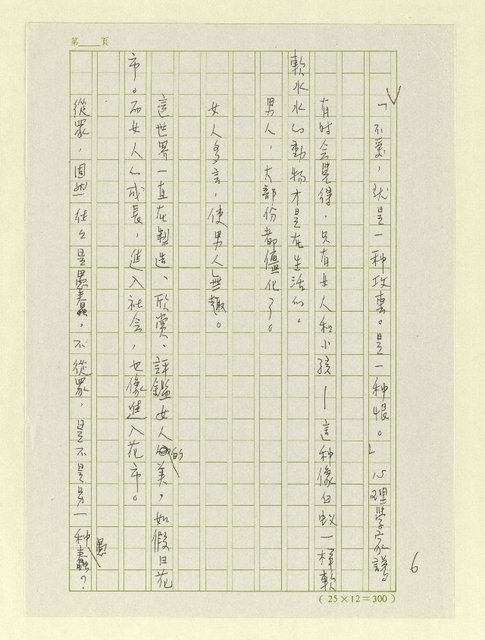 第 頁
6
「不愛，就是一種攻擊。是一種恨。」心理學家說。
有时会覺得，只有女人和小孩—這种像白蚁一样軟
軟水水的動物才是在生活的。
男人，大部份都僵化了。
女人多言，使男人無趣。
這世界一直在製造、欣賞、評鑑女人的美，如假日花
市。而女人的成長，進入社会，也像進入花市。
從眾，固然往往是愚蠢，不從眾，是不是另一种愚蠢？
( 25×12=300 )